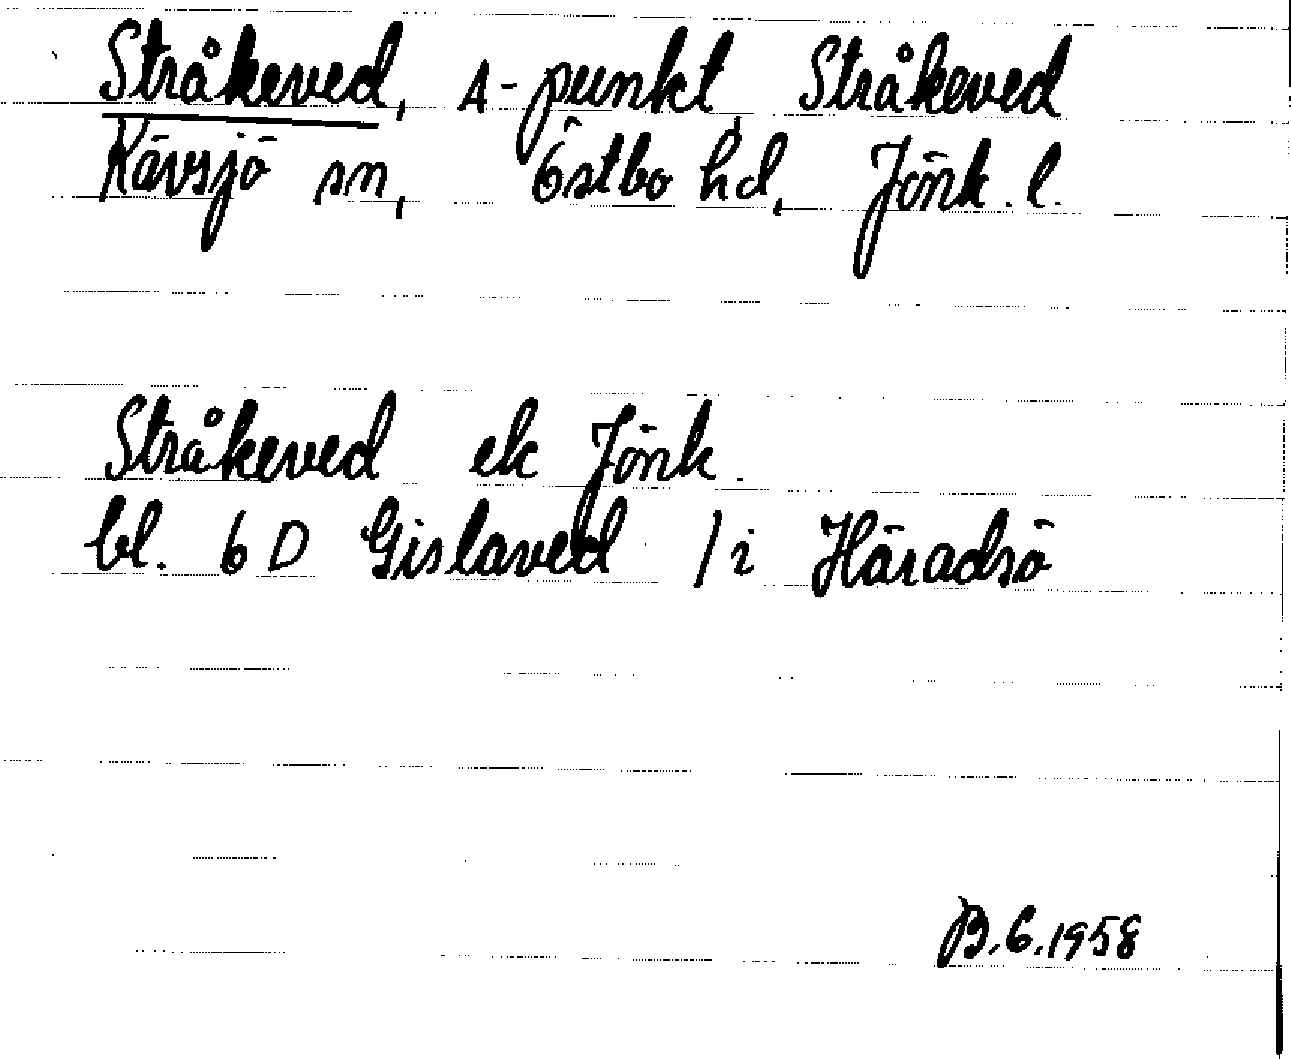 Stråkeved, A-punkt, Stråkeved
Kävsjö sn, Östbo hd, Jönk. l.
Stråkeved ek Jönk.
bl. 6 D Gislaved / i Häradsö
B.G.1958